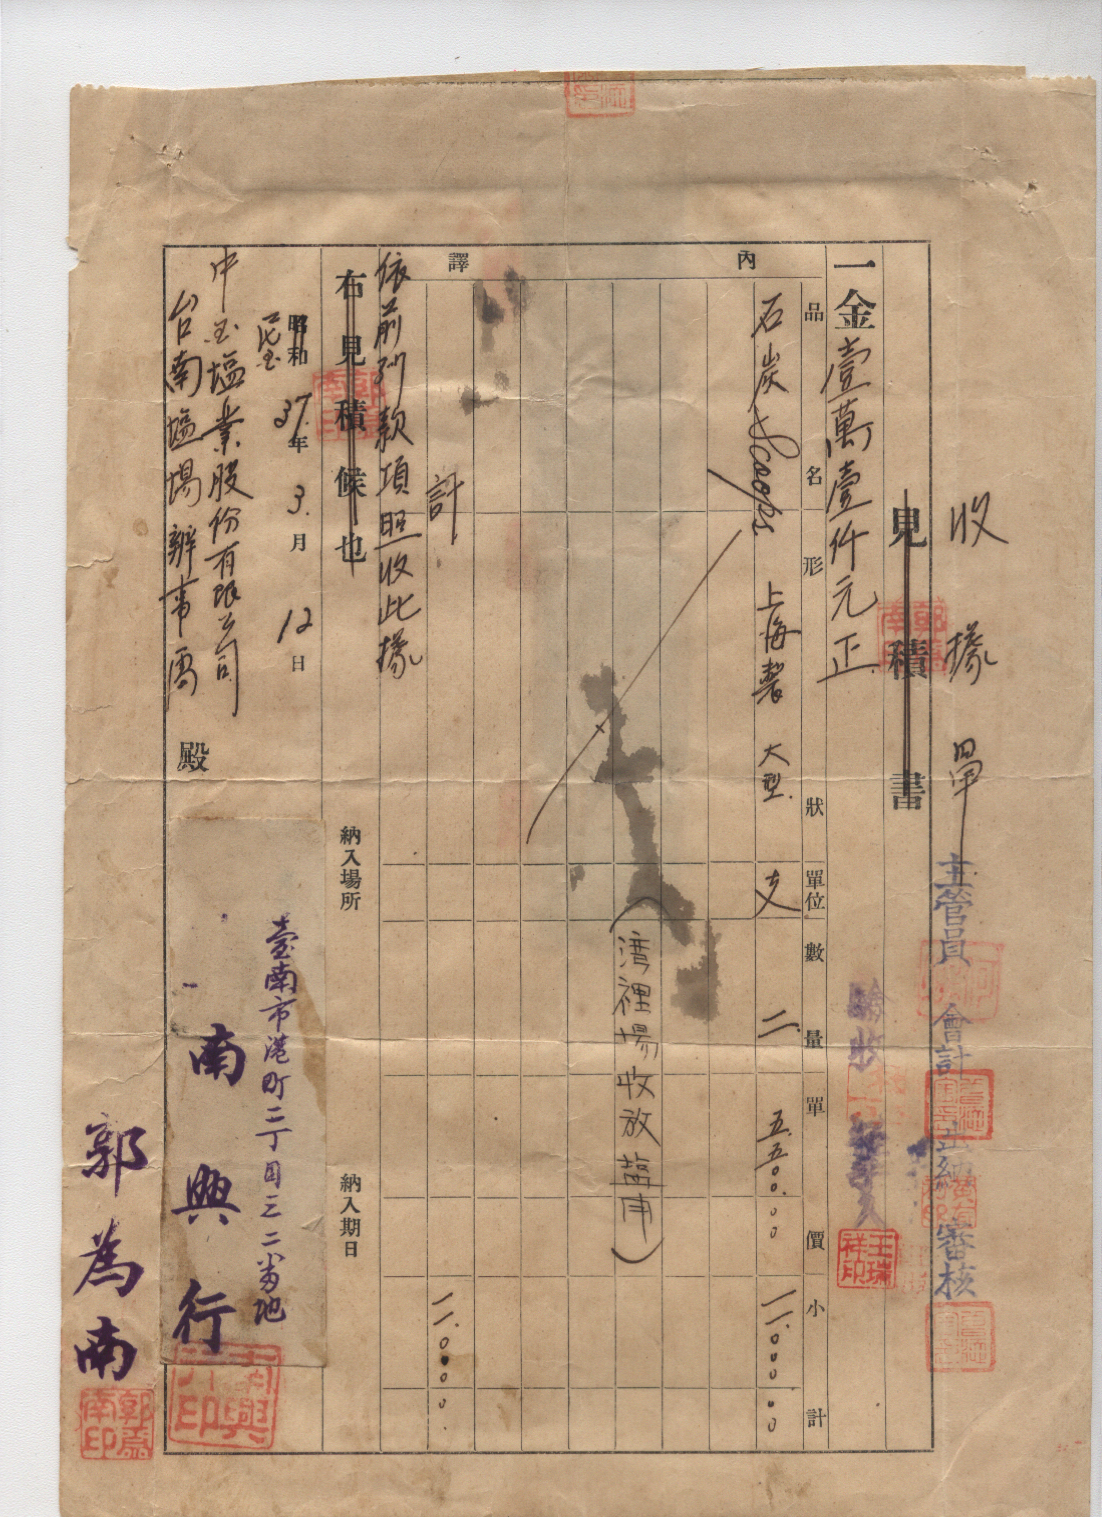 收據單
見積書
主管員 會計 出納 審核
一金壹萬壹仟元正
驗收
王瑞祥印
內譯
品名 形狀 單位 數量 單價 小計
石炭Scoops 上海製 大型 支 二 五.五00.00 一一.000.00
(湾裡場收放塩用)
計 一一.000.0
依前列款項照收此據
右見積候也
納入場所
納入期日
昭和 民国 37.年 3.月 12日
中国塩業股份有限公司
台南塩場辦事處 殿
臺南市港町二丁目三二番地
南興行
南興行印
郭為南
郭為南印